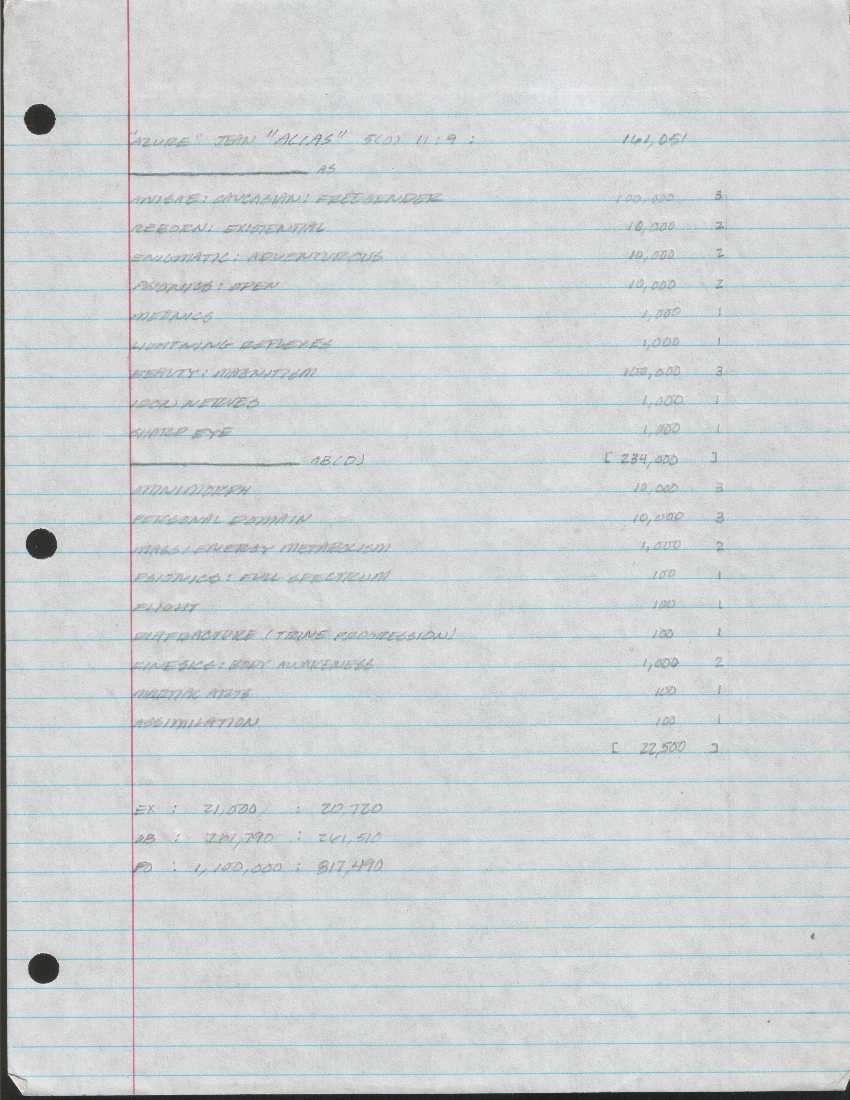 "AZURE" JEAN "ALIAS" 5(0) 11:9 : 161,051
AS
CAUCASIAN: 100,000 3
REBORN: EXISTENTIAL 10,000 2
ENIGMATIC: ADVENTUROUS 10,000 2
PSIONICS: OPEN 10,000 2
1,000 1
LIGHTNING REFLEXES 1,000 1
BEAUTY: MAGNITISM 100,000 3
IRON NERVES 1,000 1
SHARP EYE 1,000 1
AB(D) [ 234,000 ]
10,000 3
PERSONAL DOMAIN 10,000 3
MASS/ENERGY METABOLISM 1,000 2
PSIONICS: FULL SPECTRUM 100 1
FLIGHT 100 1
(TRINE PROGRESSION) 100 1
KINESICS: BODY AWARENESS 1,000 2
MARTIAL ARTS 100 1
ASSIMILATION 100 1
[ 22,500 ]
EX : 21,000 : 20,720
AB : 261,790 : 261,510
PO : 1,100,000 : 817,490